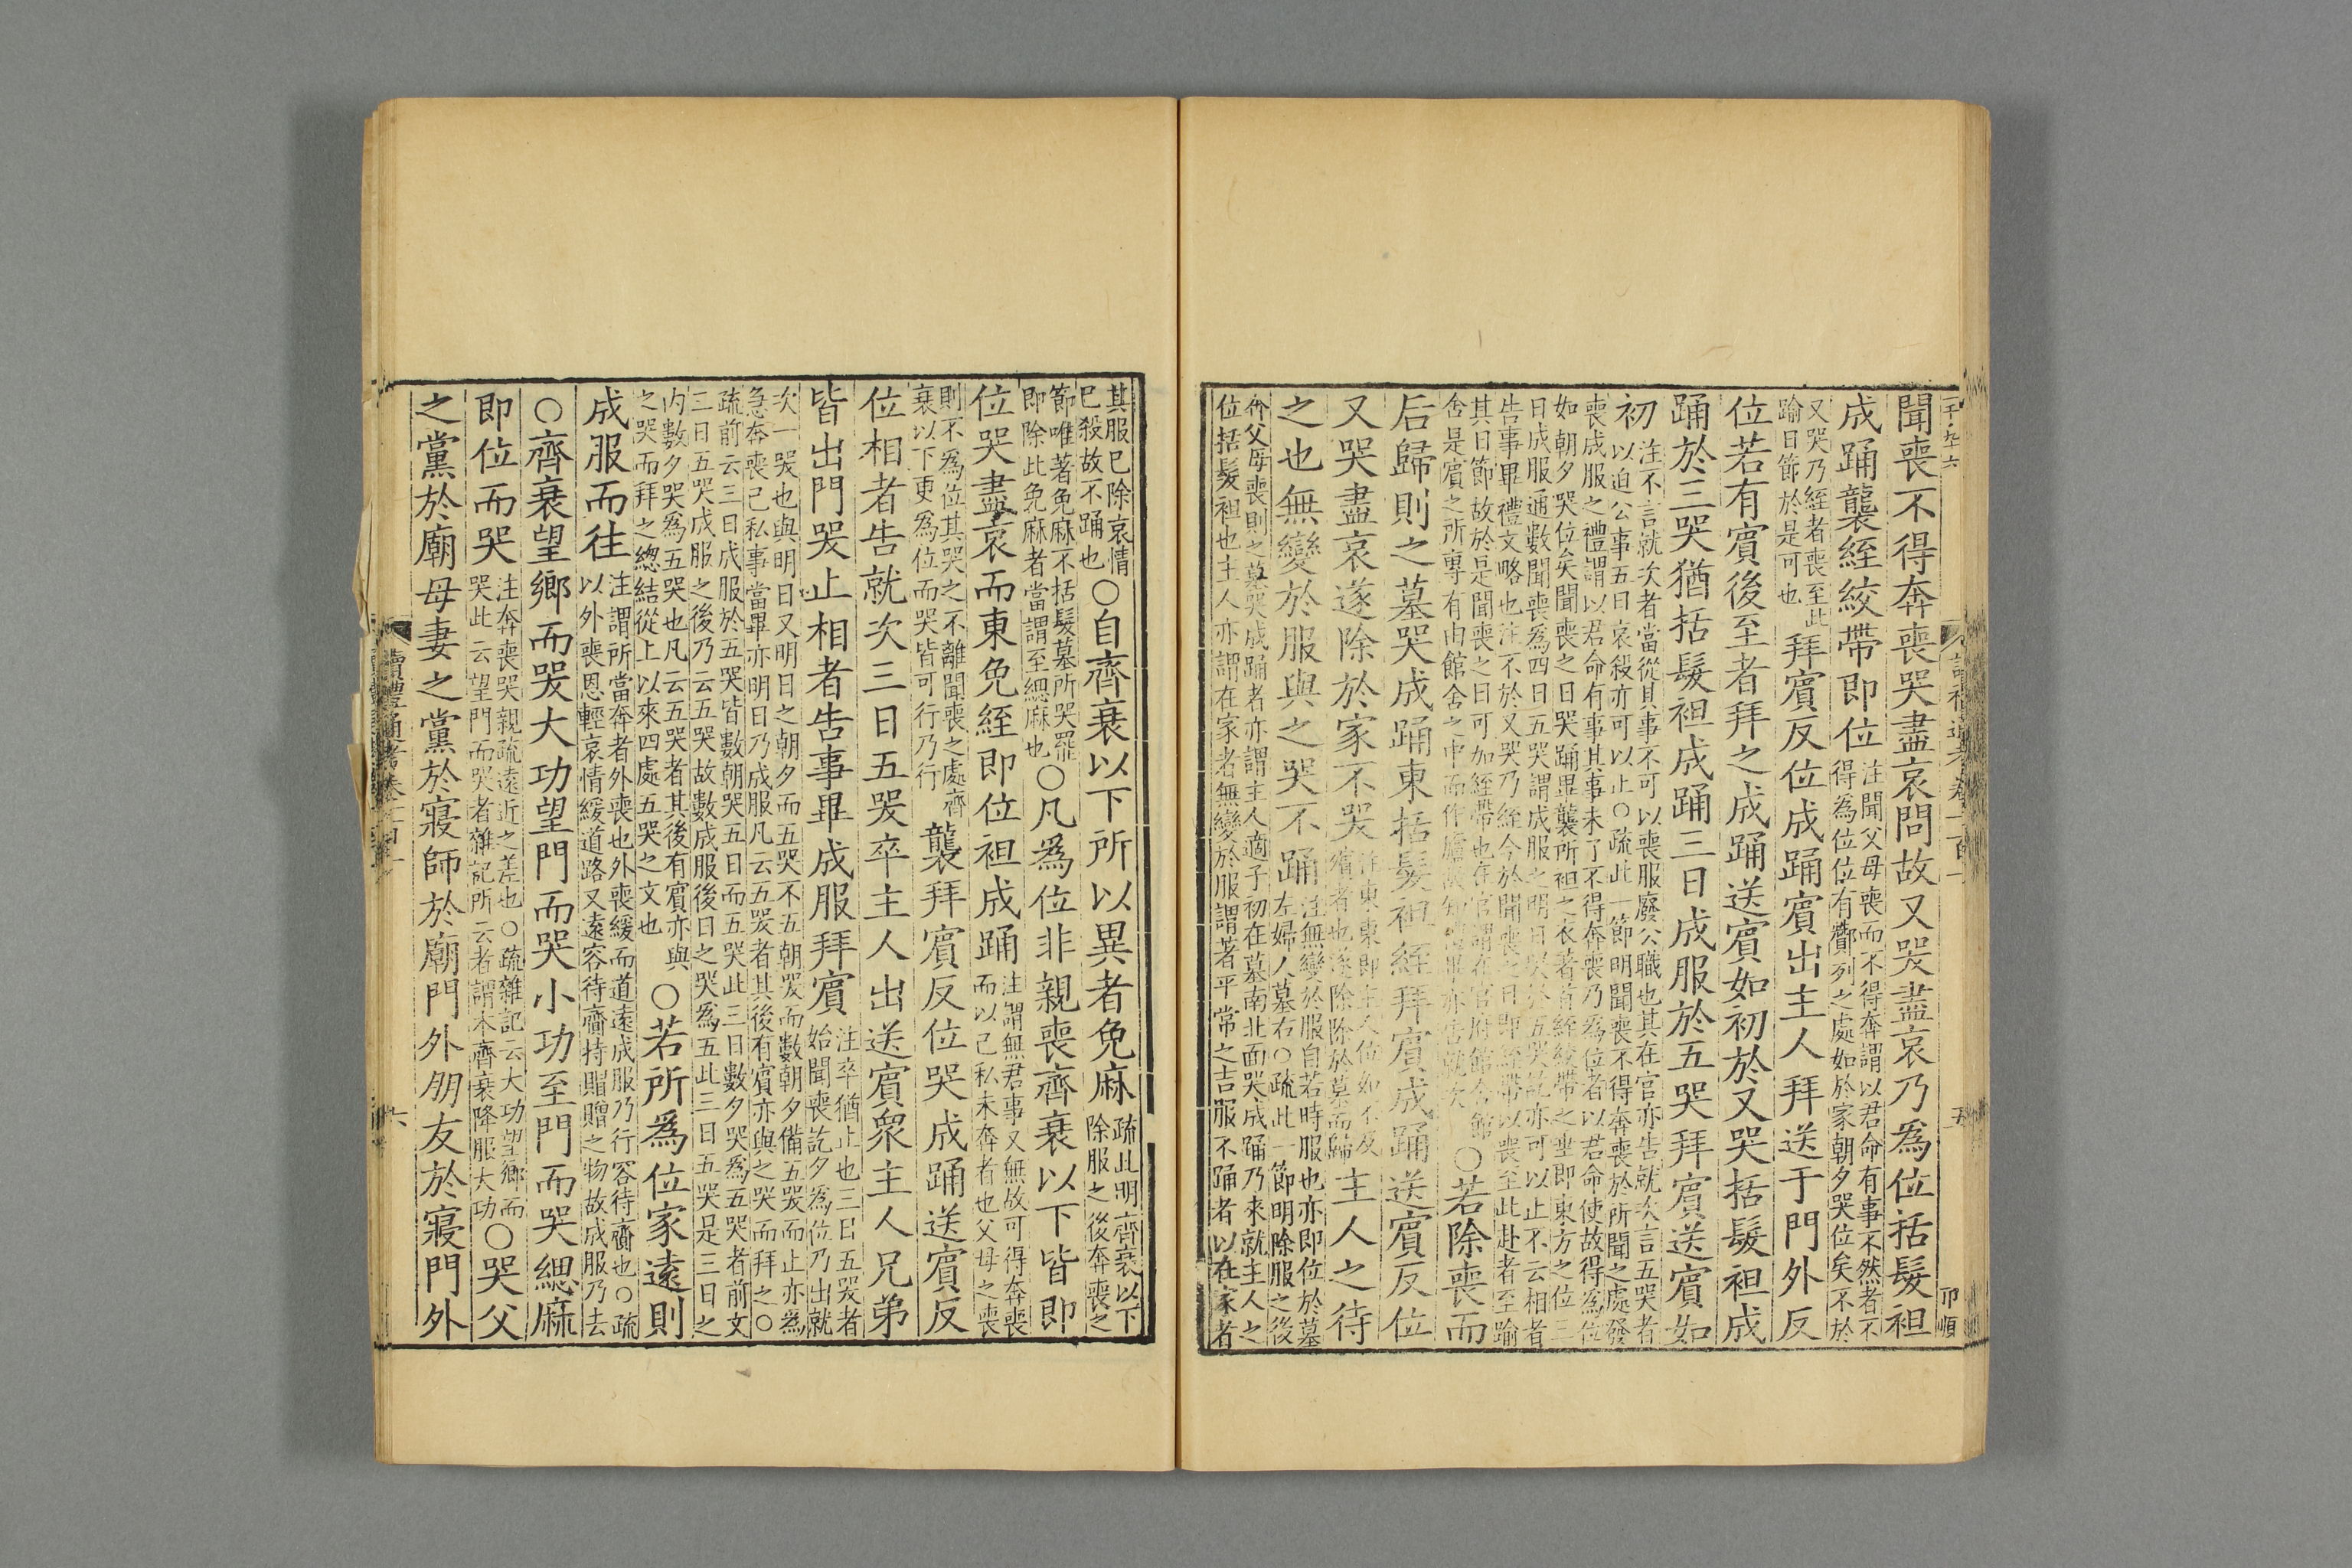 聞喪不得奔喪哭盡哀問故又哭盡哀乃為位括髮袒
成踊襲絰絞帶即位注聞父母喪而不得奔謂以君命有事不然者不得為位位有酇列之處如於家朝夕哭位矣不於
又哭乃絰者喪至此踰日節於是可也拜賓反位成踊賓出主人拜送于門外反
位若有賓後至者拜之成踊送賓如初於又哭括髮袒成
踊於三哭猶括髮袒成踊三日成服於五哭拜賓送賓如
初注不言就次者當從其事不可以喪服廢公職也其在官亦告就次言五哭者以迫公事五日哀殺亦可以止○疏此一節明聞喪不得奔喪於所聞之處發
喪成服之禮謂以君命有事其事未了不得奔喪乃為位者以君命使故得為位如朝夕哭位矣聞喪之日哭踊畢襲所袒之衣著首絰絞帶之即東方之位三
日成服通數聞喪為四日五哭謂成服之明日五哭訖亦可以止不云相者告事畢禮文略也注不於又哭乃絰今於聞喪之日即絰帶以喪至此赴者至踰
其日節故於是聞喪之日可加絰帶也在官謂在官府館舍是賓之所専有由館舍之中而作廬亦告就次○若除喪而
后歸則之墓哭成踊東括髮袒絰拜賓成踊送賓反位
又哭盡哀遂除於家不哭注東東即主人位如不及殯者也遂除除於墓而歸主人之待
之也無變於服與之哭不踊注無變於服自若時服也亦即位於墓左婦人墓右○疏此一節明除服之後
奔父母喪則之墓哭成踊者亦謂主人適子初在墓南北面哭成踊乃來就主人之位括髮袒也主人亦謂在家者無變於服謂著平常之吉服不踊者以在家者
其服已除哀情已殺故不踊也○自齊衰以下所以異者免麻疏此明齊衰以下除服之後奔喪之
節唯著免麻不括髮墓所哭罷即除此免麻者當謂至緦麻也○凡為位非親喪齊衰以下皆即
位哭盡哀而東免絰即位袒成踊注謂無君事又無故可得奔喪而以己私未奔者也父母之喪
則不為位其哭之不離聞喪之處齊衰以下更為位而哭皆可行乃行襲拜賓反位哭成踊送賓反
位相者告就次三日五哭卒主人出送賓衆主人兄弟
皆出門哭止相者告事畢成服拜賓注卒猶止也三日五哭者始聞喪訖夕為位乃出就
次一哭也與明日又明日之朝夕而五哭不五朝哭而數朝夕備五哭而止亦為急奔喪己私事當畢亦明日乃成服凡云五哭者其後有賓亦與之哭而拜之○
疏前云三日成服於五哭皆數朝哭五日而五哭此三日數夕哭為五哭者前文三日五哭成服之後乃云五哭故數成服後日之哭為五此三日五哭是三日之
内數夕哭為五哭也凡云五哭者其後有賓亦與之哭而拜之總結從上以來四處五哭之文也○若所為位家遠則
成服而往注謂所當奔者外喪也外喪緩而道遠成服乃行容待齎也○疏以外喪恩輕哀情緩道路又遠容待齎持賵贈之物故成服乃去
○齊衰望鄉而哭大功望門而哭小功至門而哭緦麻
即位而哭注奔喪哭親疏遠近之差也○疏雜記云大功望鄉而哭此云望門而哭者雜記所云者謂本齊衰降服大功○哭父
之黨於廟母妻之黨於寢師於廟門外朋友於寢門外
讀禮通考卷一百一
五
卯順
六